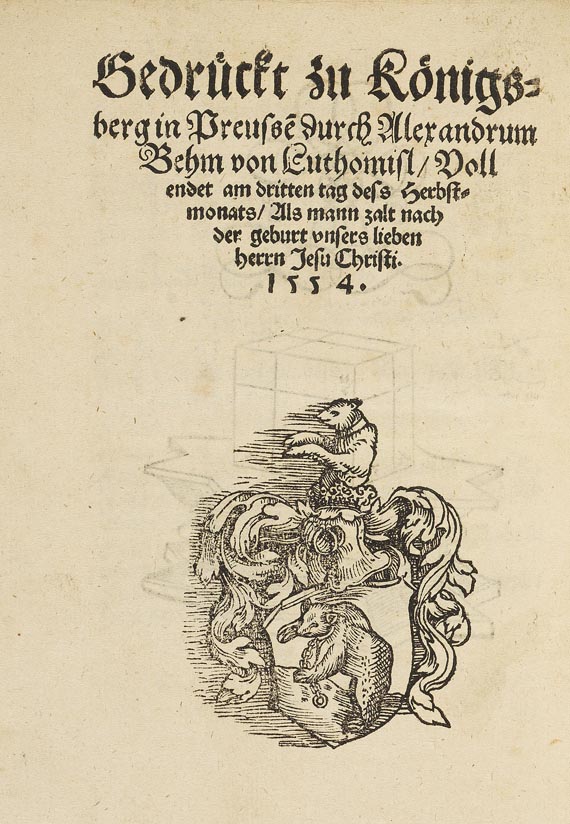 Gedrückt zu Königs-
berg in Preussē durch Alexandrum
Behm von Luthomisl/ Voll
endet am dritten tag dess Herbst-
monats/ Als mann zalt nach
der geburt vnsers lieben
herrn Jesu Christi.
1554.